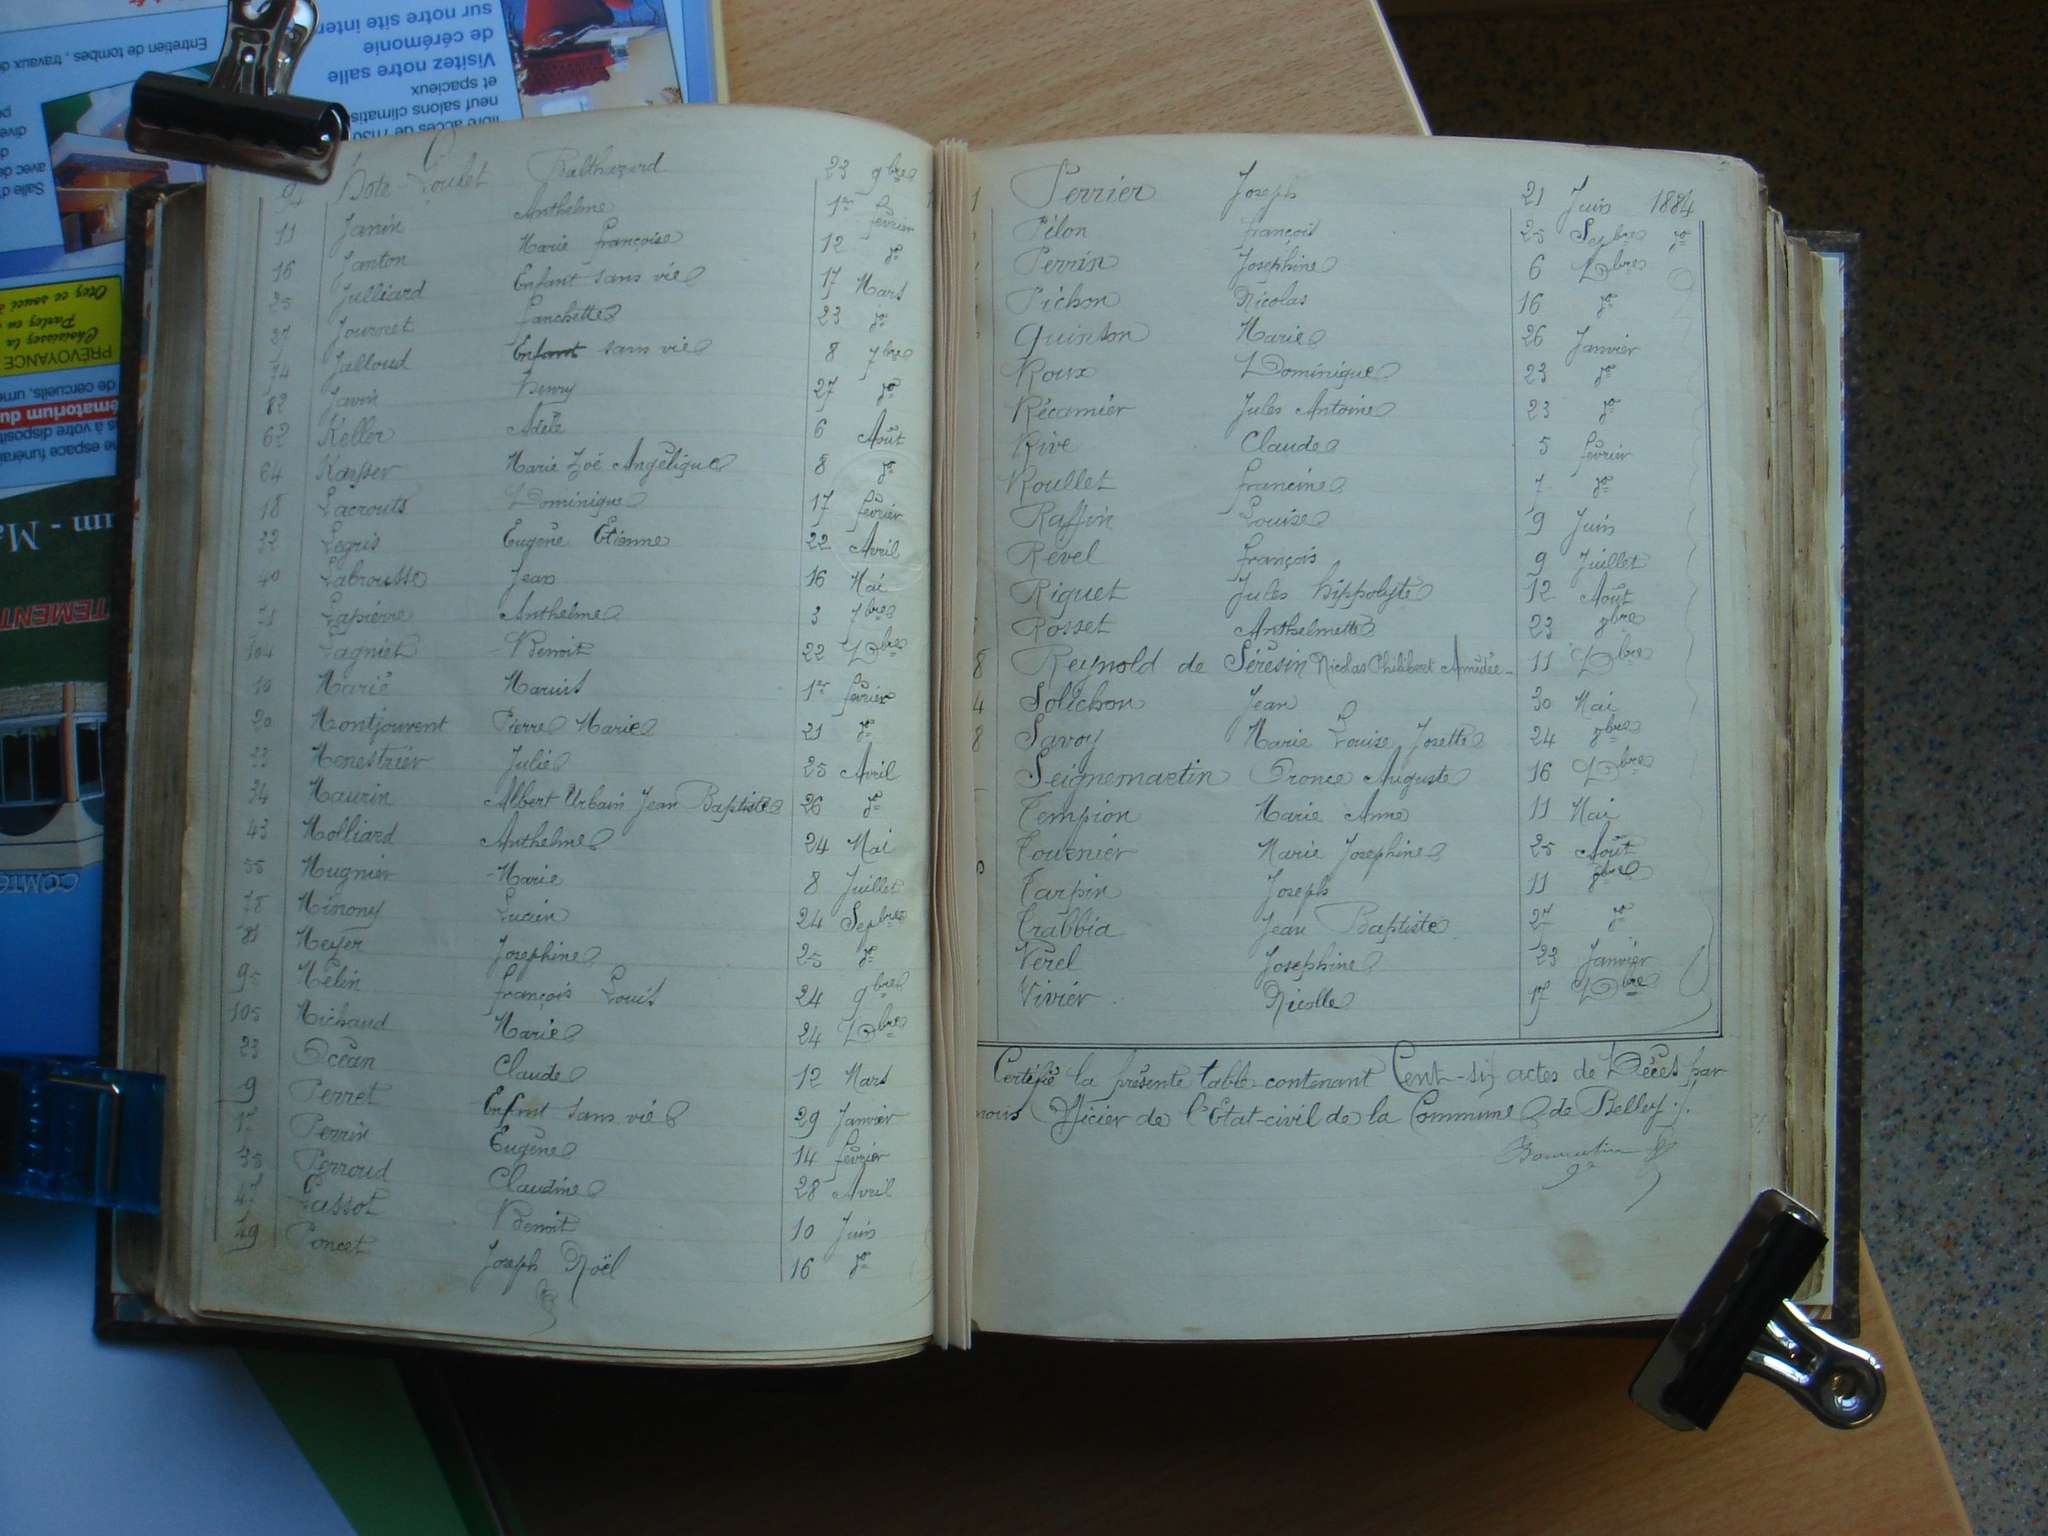 Hote-Joulet Balthazard 23 9bre
11 Janin Anthelme 1er février
16 Janton Marie Françoise 12 do
25 Julliard Enfant sans vie 17 Mars
27 Journet Fanchette 23 do
74 Jalloud Enfant sans vie 8 7bre
82 Javin Henry 27 do
62 Keller Adèle 6 Août
64 Kasper Marie Zoé Angélique 8 do
18 Lacrouts Dominique 17 février
32 Legris Eugène Etienne 22 Avril
40 Labrousse Jean 16 Mai
71 Lapierre Anthelme 3 7bre
104 Lagniet Benoit 22 Dbre
10 Marie Marius 1er février
20 Montjouvent Pierre Marie 21 do
33 Menestrier Julie 25 Avril
34 Maurin Albert Urbain Jean Baptiste 26 do
43 Molliard Anthelme 24 Mai
55 Mugnier Marie 8 Juillet
78 Minony Lucien 24 Sepbre
81 Meyer Josephine 25 do
95 Mélin François Louis 24 9bre
105 Michaud Marie 24 Dbre
23 Océan Claude 12 Mars
9 Perret Enfant sans vie 29 Janvier
17 Perrin Eugène 14 février
35 Perroud Claudine 28 Avril
47 Passot Benoit 10 Juin
49 Poncet Joseph Noël 16 do
1 Perrier Joseph 21 Juin 1884
Pilon François 25 Sepbre do
Perrin Josephine 6 Dbre
Pichon Nicolas 16 do
Quinson Marie 26 Janvier
Roux Dominique 23 do
Récamier Jules Antoine 23 do
Rive Claude 5 février
Roullet Francine 7 do
Raffin Louise 9 Juin
Revel François 9 Juillet
Riguet Jules Hippolyte 12 Août
Rosset Anthelmette 23 8bre
8 Reynold de Séresin Nicolas Philibert Amédée 11 Dbre
4 Solichon Jean 30 Mai
8 Savoy Marie Louise Josette 24 8bre
Seignemartin Prance Auguste 16 Dbre
Tempion Marie Anne 11 Mai
Tournier Marie Josephine 25 Août
Tarpin Joseph 11 8bre
Trabbia Jean Baptiste 27 do
Verel Josephine 23 Janvier
Vivier Nicolle 17 Dbre
Certifié la présente table contenant Cent-six actes de Décès par
nous Officier de l'Etat-civil de la Commune de Belley.
sur notre site inter
de cérémonie
Visitez notre salle
et spacieux
neuf salons climatis
libre accès de 7h30
Entretien de tombes, travaux d
Salle d'
avec de
dive
Otez ce souci à
Parlez en
Choisissez la
PRÉVOYANCE
de cercueils, urne
ématorium du
s à votre disposit
ne espace funérai
um - Ma
TEMENT
COMTE